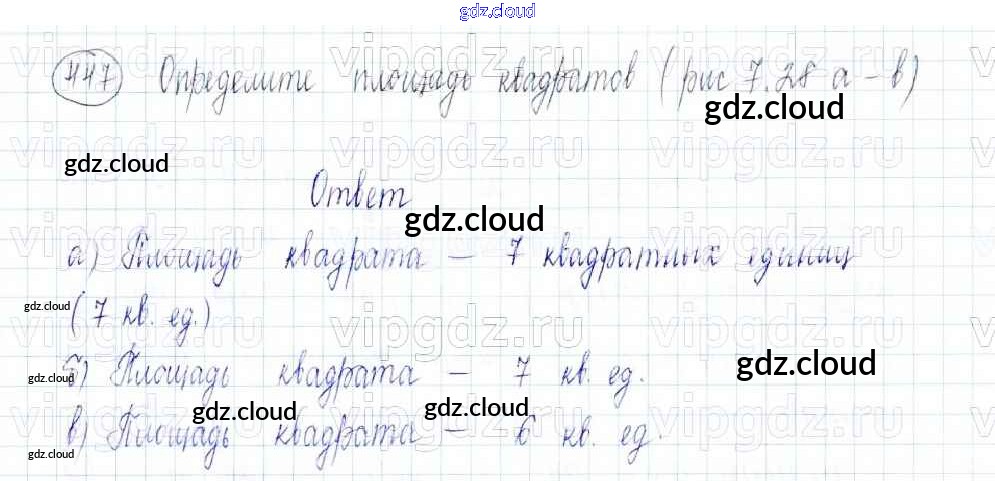 gdz.cloud
447 Определите площадь квадратов (рис 7.28 а – в)
gdz.cloud
gdz.cloud
Ответ
gdz.cloud
а) Площадь квадрата – 7 квадратных единиц
gdz.cloud
(7 кв. ед.)
gdz.cloud
gdz.cloud
б) Площадь квадрата – 7 кв. ед.
gdz.cloud
gdz.cloud
в) Площадь квадрата – 6 кв. ед.
gdz.cloud
vipgdz.ru